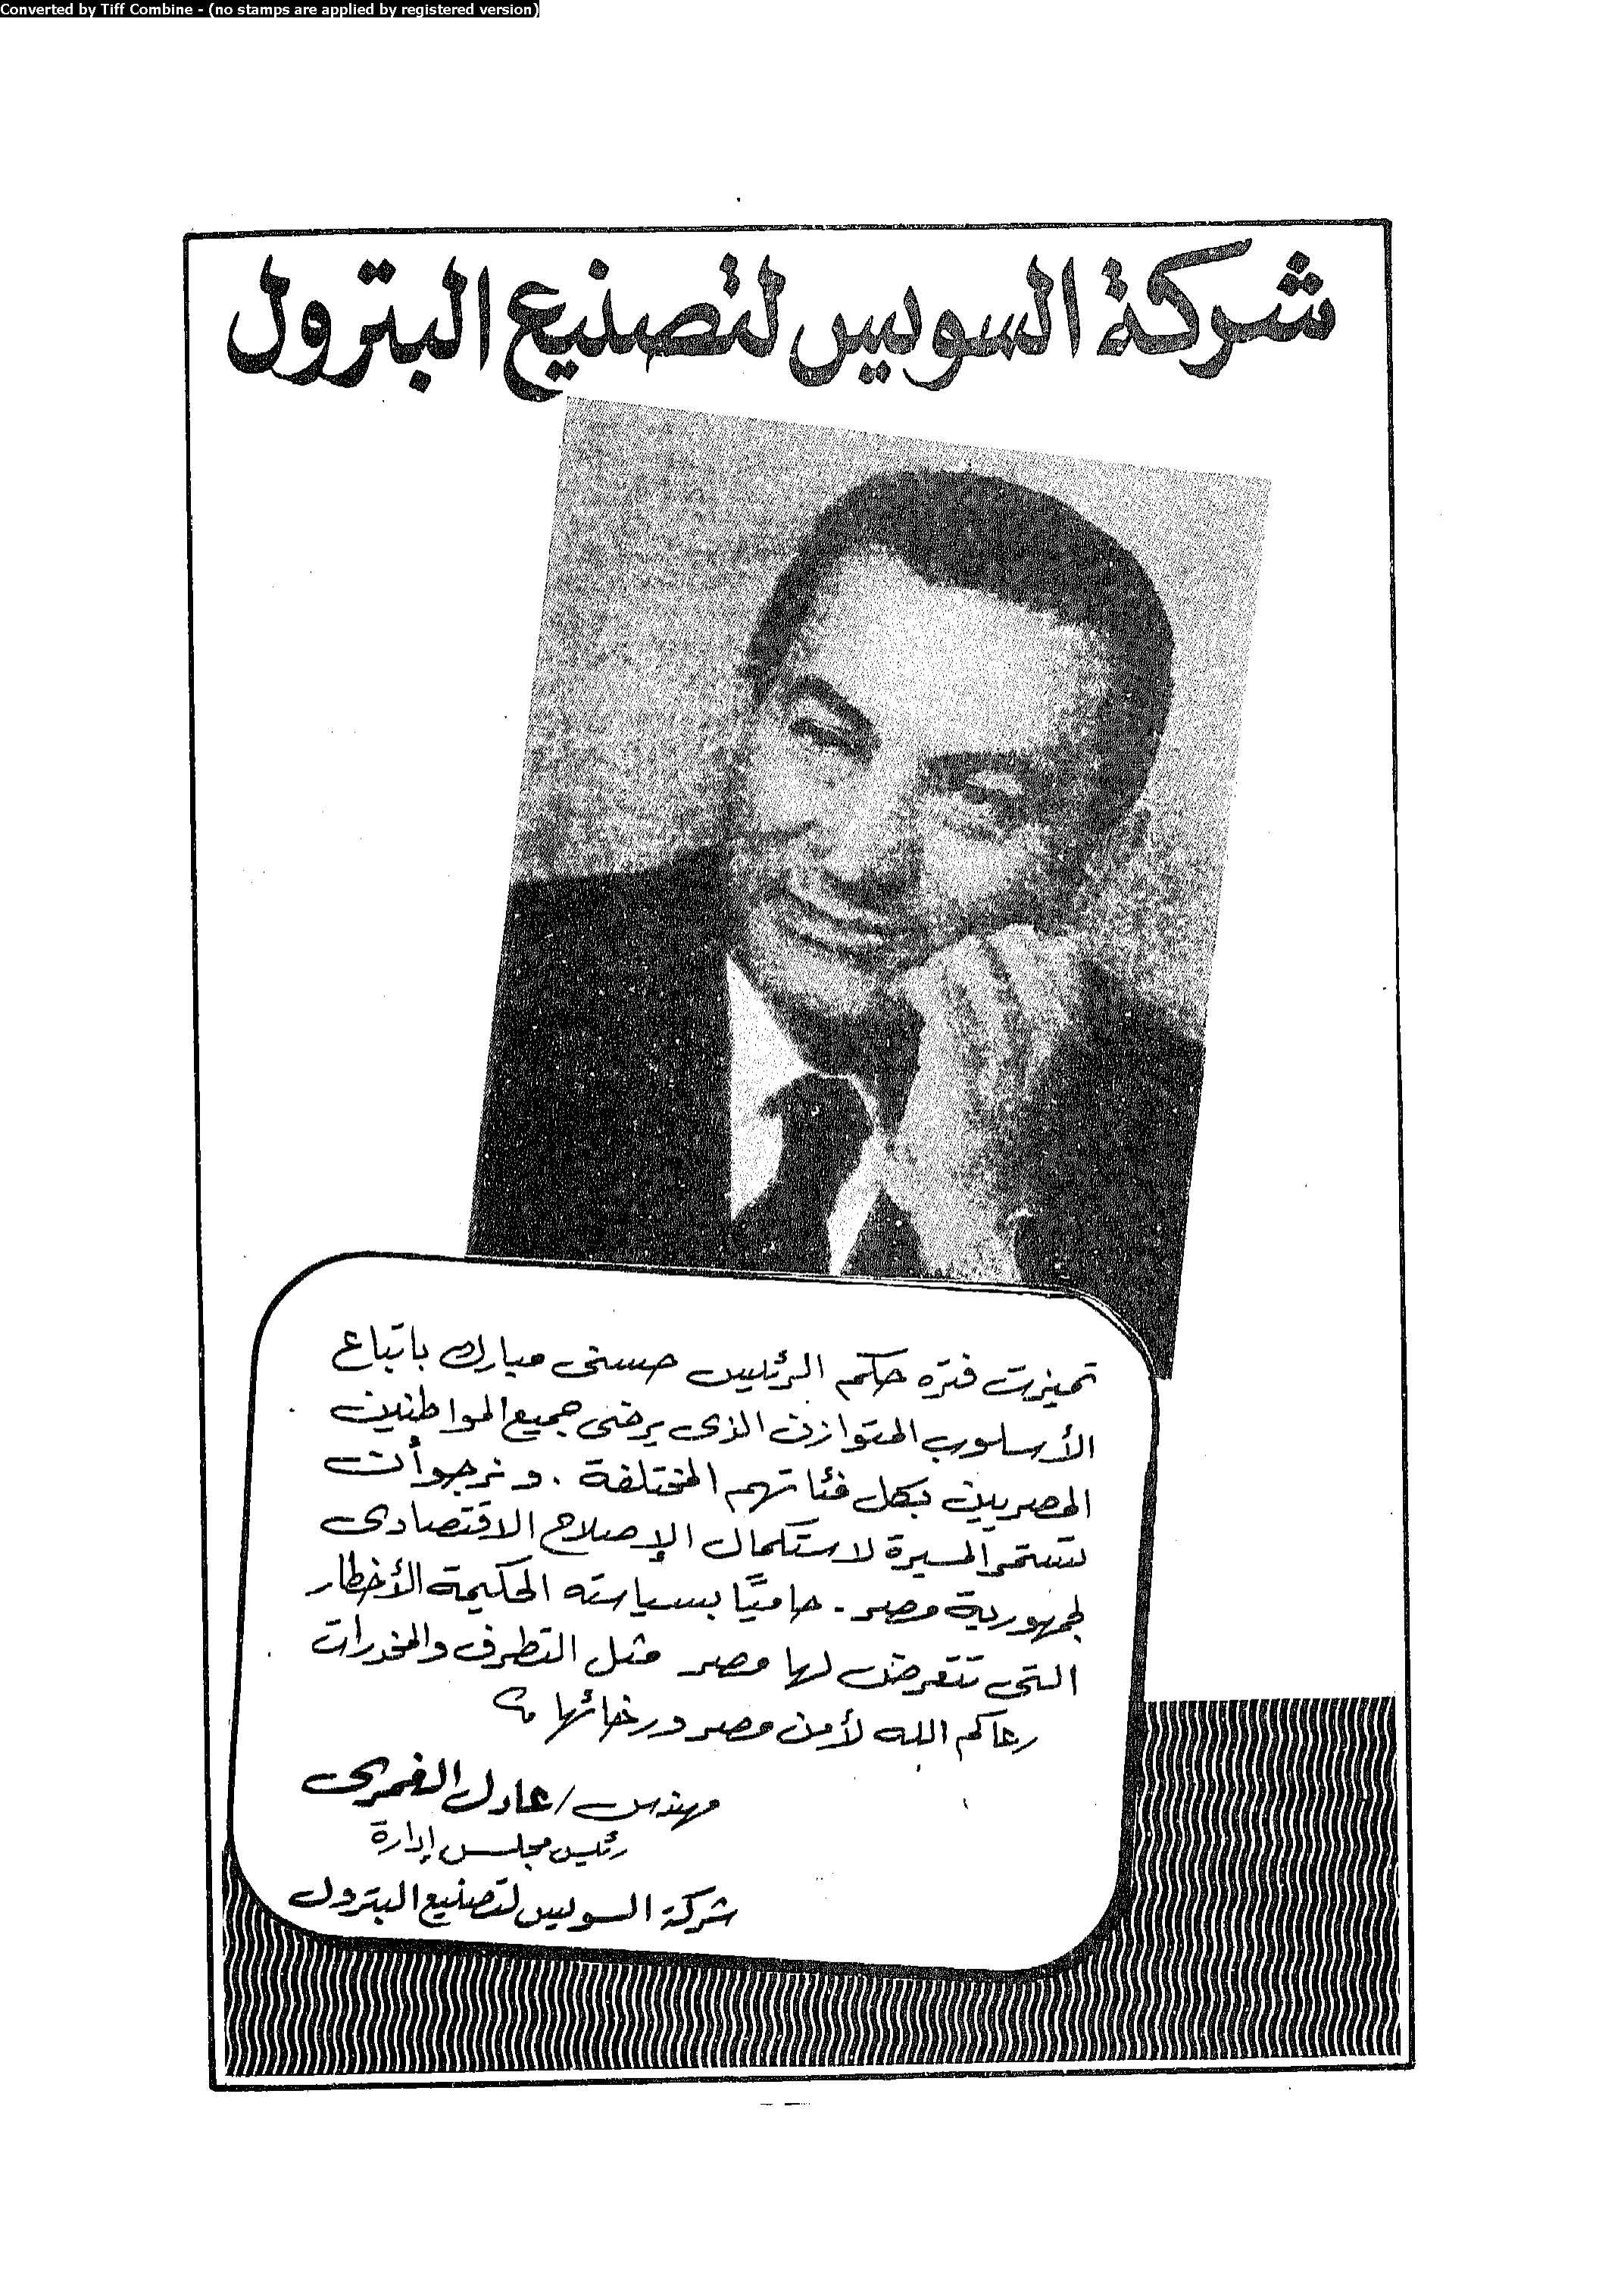 Converted by Tiff Combine - (no stamps are applied by registered version)
شركة السويس لتصنيع البترول
تميزت فتره حكم الرئيس حسنى مبارك باتباع
الأسلوب المتوازن الذى يرضى جميع المواطنين
المصريين بكل فئاتهم المختلفة . ونرجو أن
تستمر المسيرة لاستكمال الإصلاح الاقتصادى
لجمهورية مصر - حاميًا بسياسته الحكيمة الأخطار
التى تتعرض لها مصر مثل التطرف والمخدرات
رعاكم الله لأمن مصر ورخائها
مهندس / عادل الغمرى
رئيس مجلس إدارة
شركة السويس لتصنيع البترول